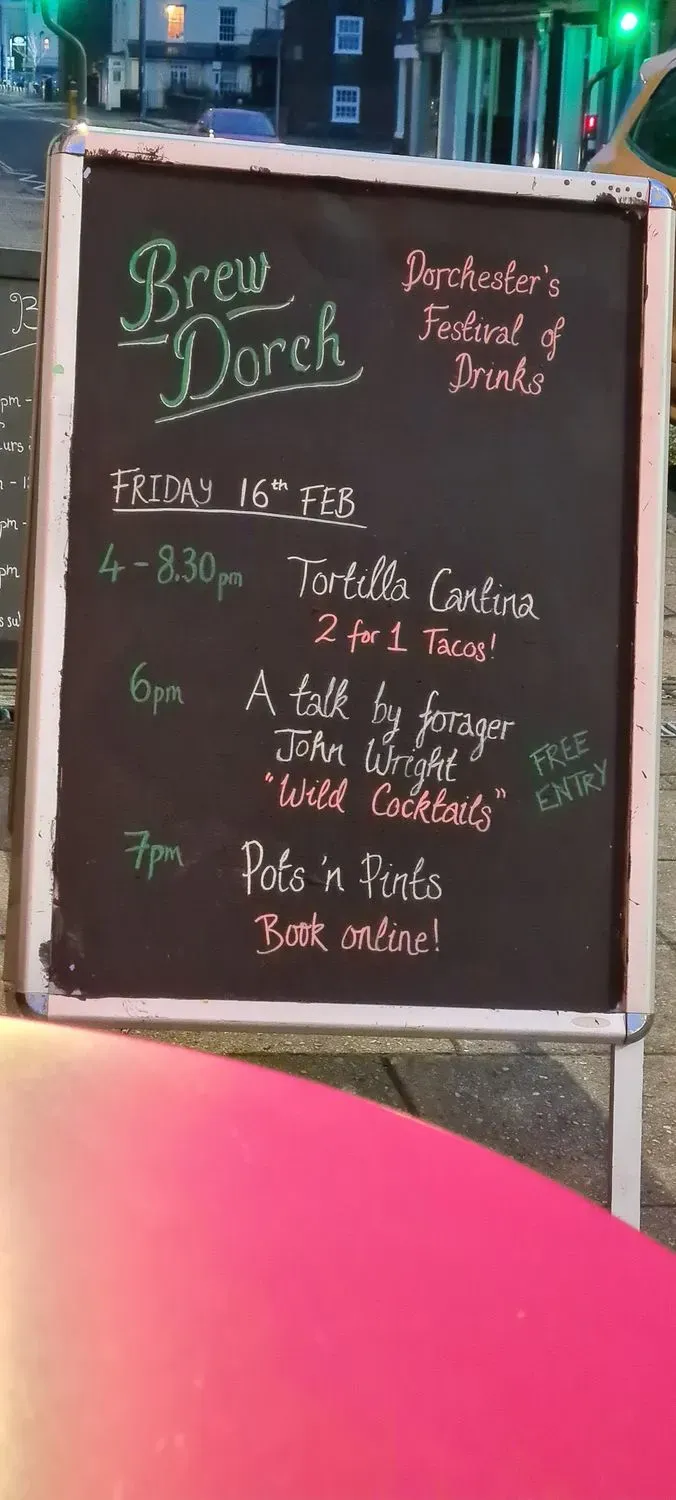 Brew
Dorch
Dorchester's
Festival of
Drinks
FRIDAY 16th FEB
4-8.30pm Tortilla Cantina
2 for 1 Tacos!
6pm A talk by forager
John Wright
"Wild Cocktails"
FREE
ENTRY
7pm Pots 'n Pints
Book online!